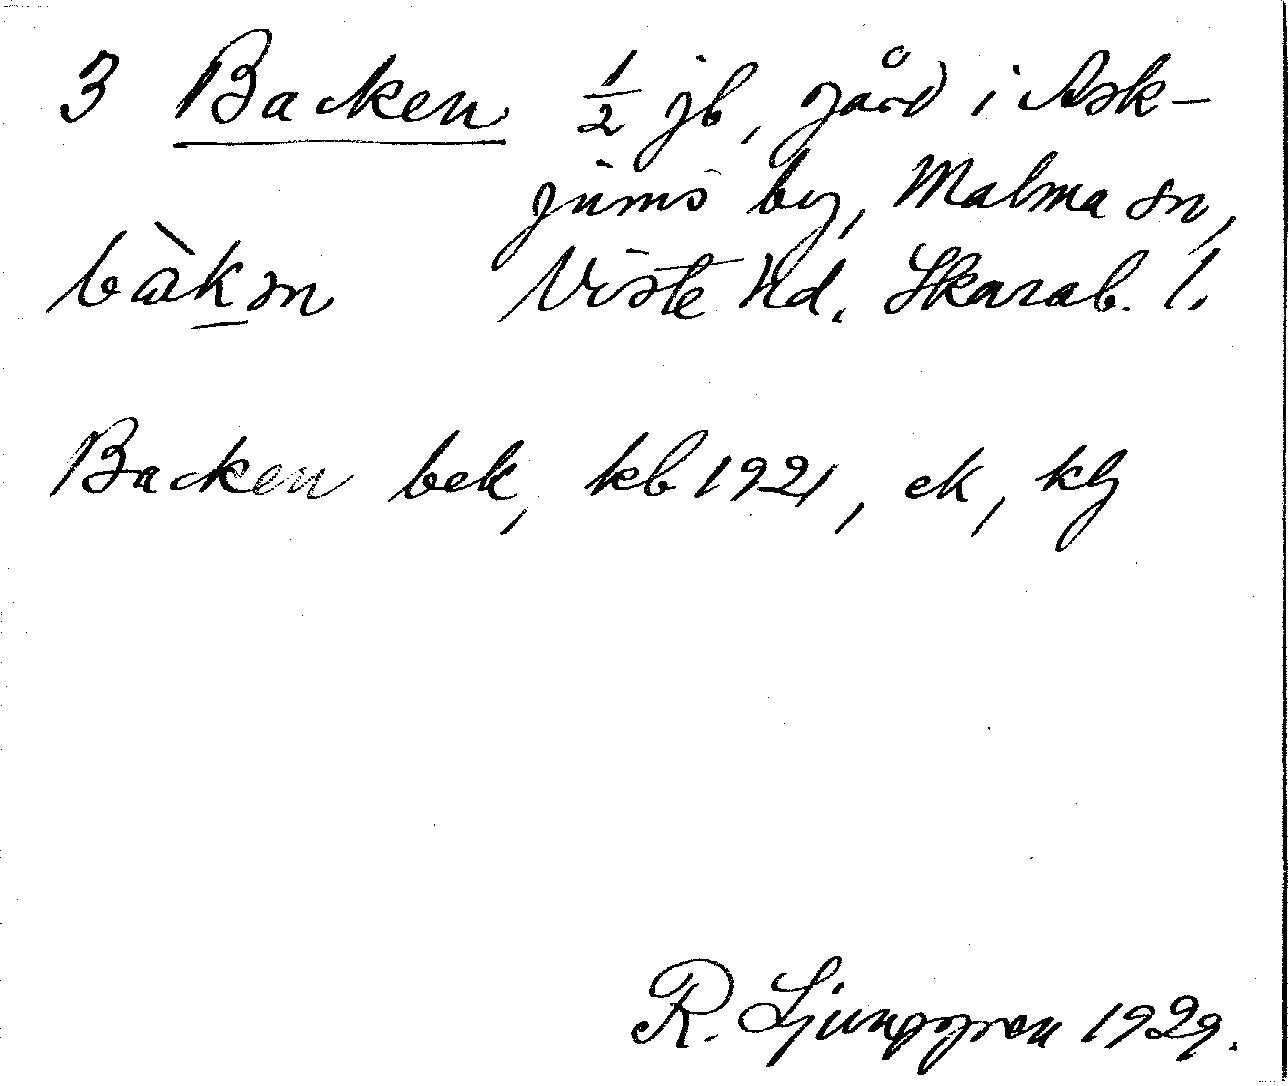 3 Backen ½ jb, gård i Ask-
jums by, Malma sn,
bàkən Viste hd. Skarab. l.
Backen bek, kb 1921, ek, kg
R. Ljunggren 1929.